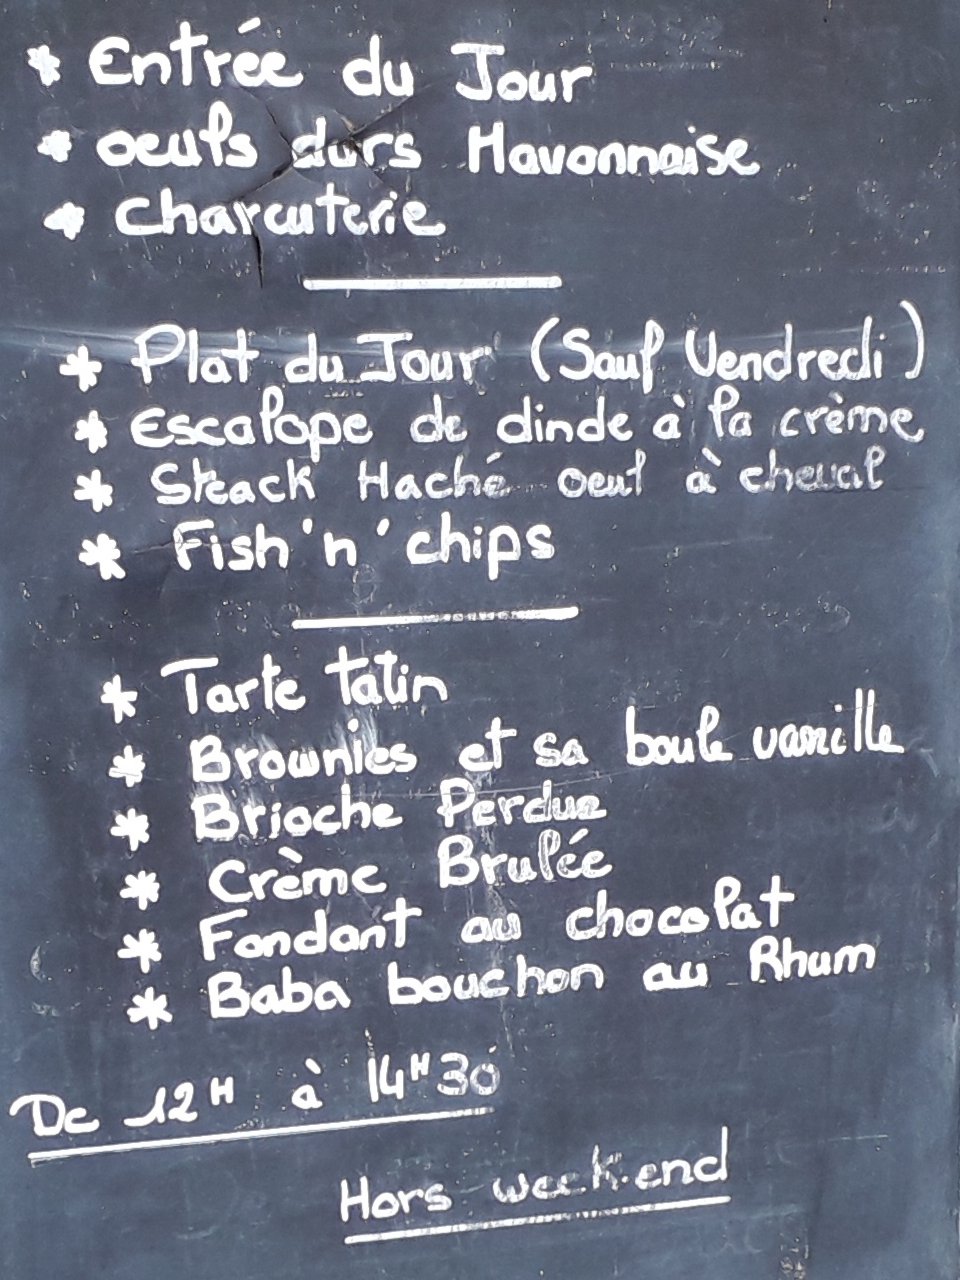 * Entrée du Jour
* oeufs durs Mayonnaise
* charcuterie
* Plat du Jour (Sauf Vendredi)
* Escalope de dinde à la crème
* Steack Haché oeuf à cheval
* Fish'n'chips
* Tarte tatin
* Brownies et sa boule vanille
* Brioche Perdue
* Crème Brulée
* Fondant au chocolat
* Baba bouchon au Rhum
De 12H à 14H30
Hors week-end